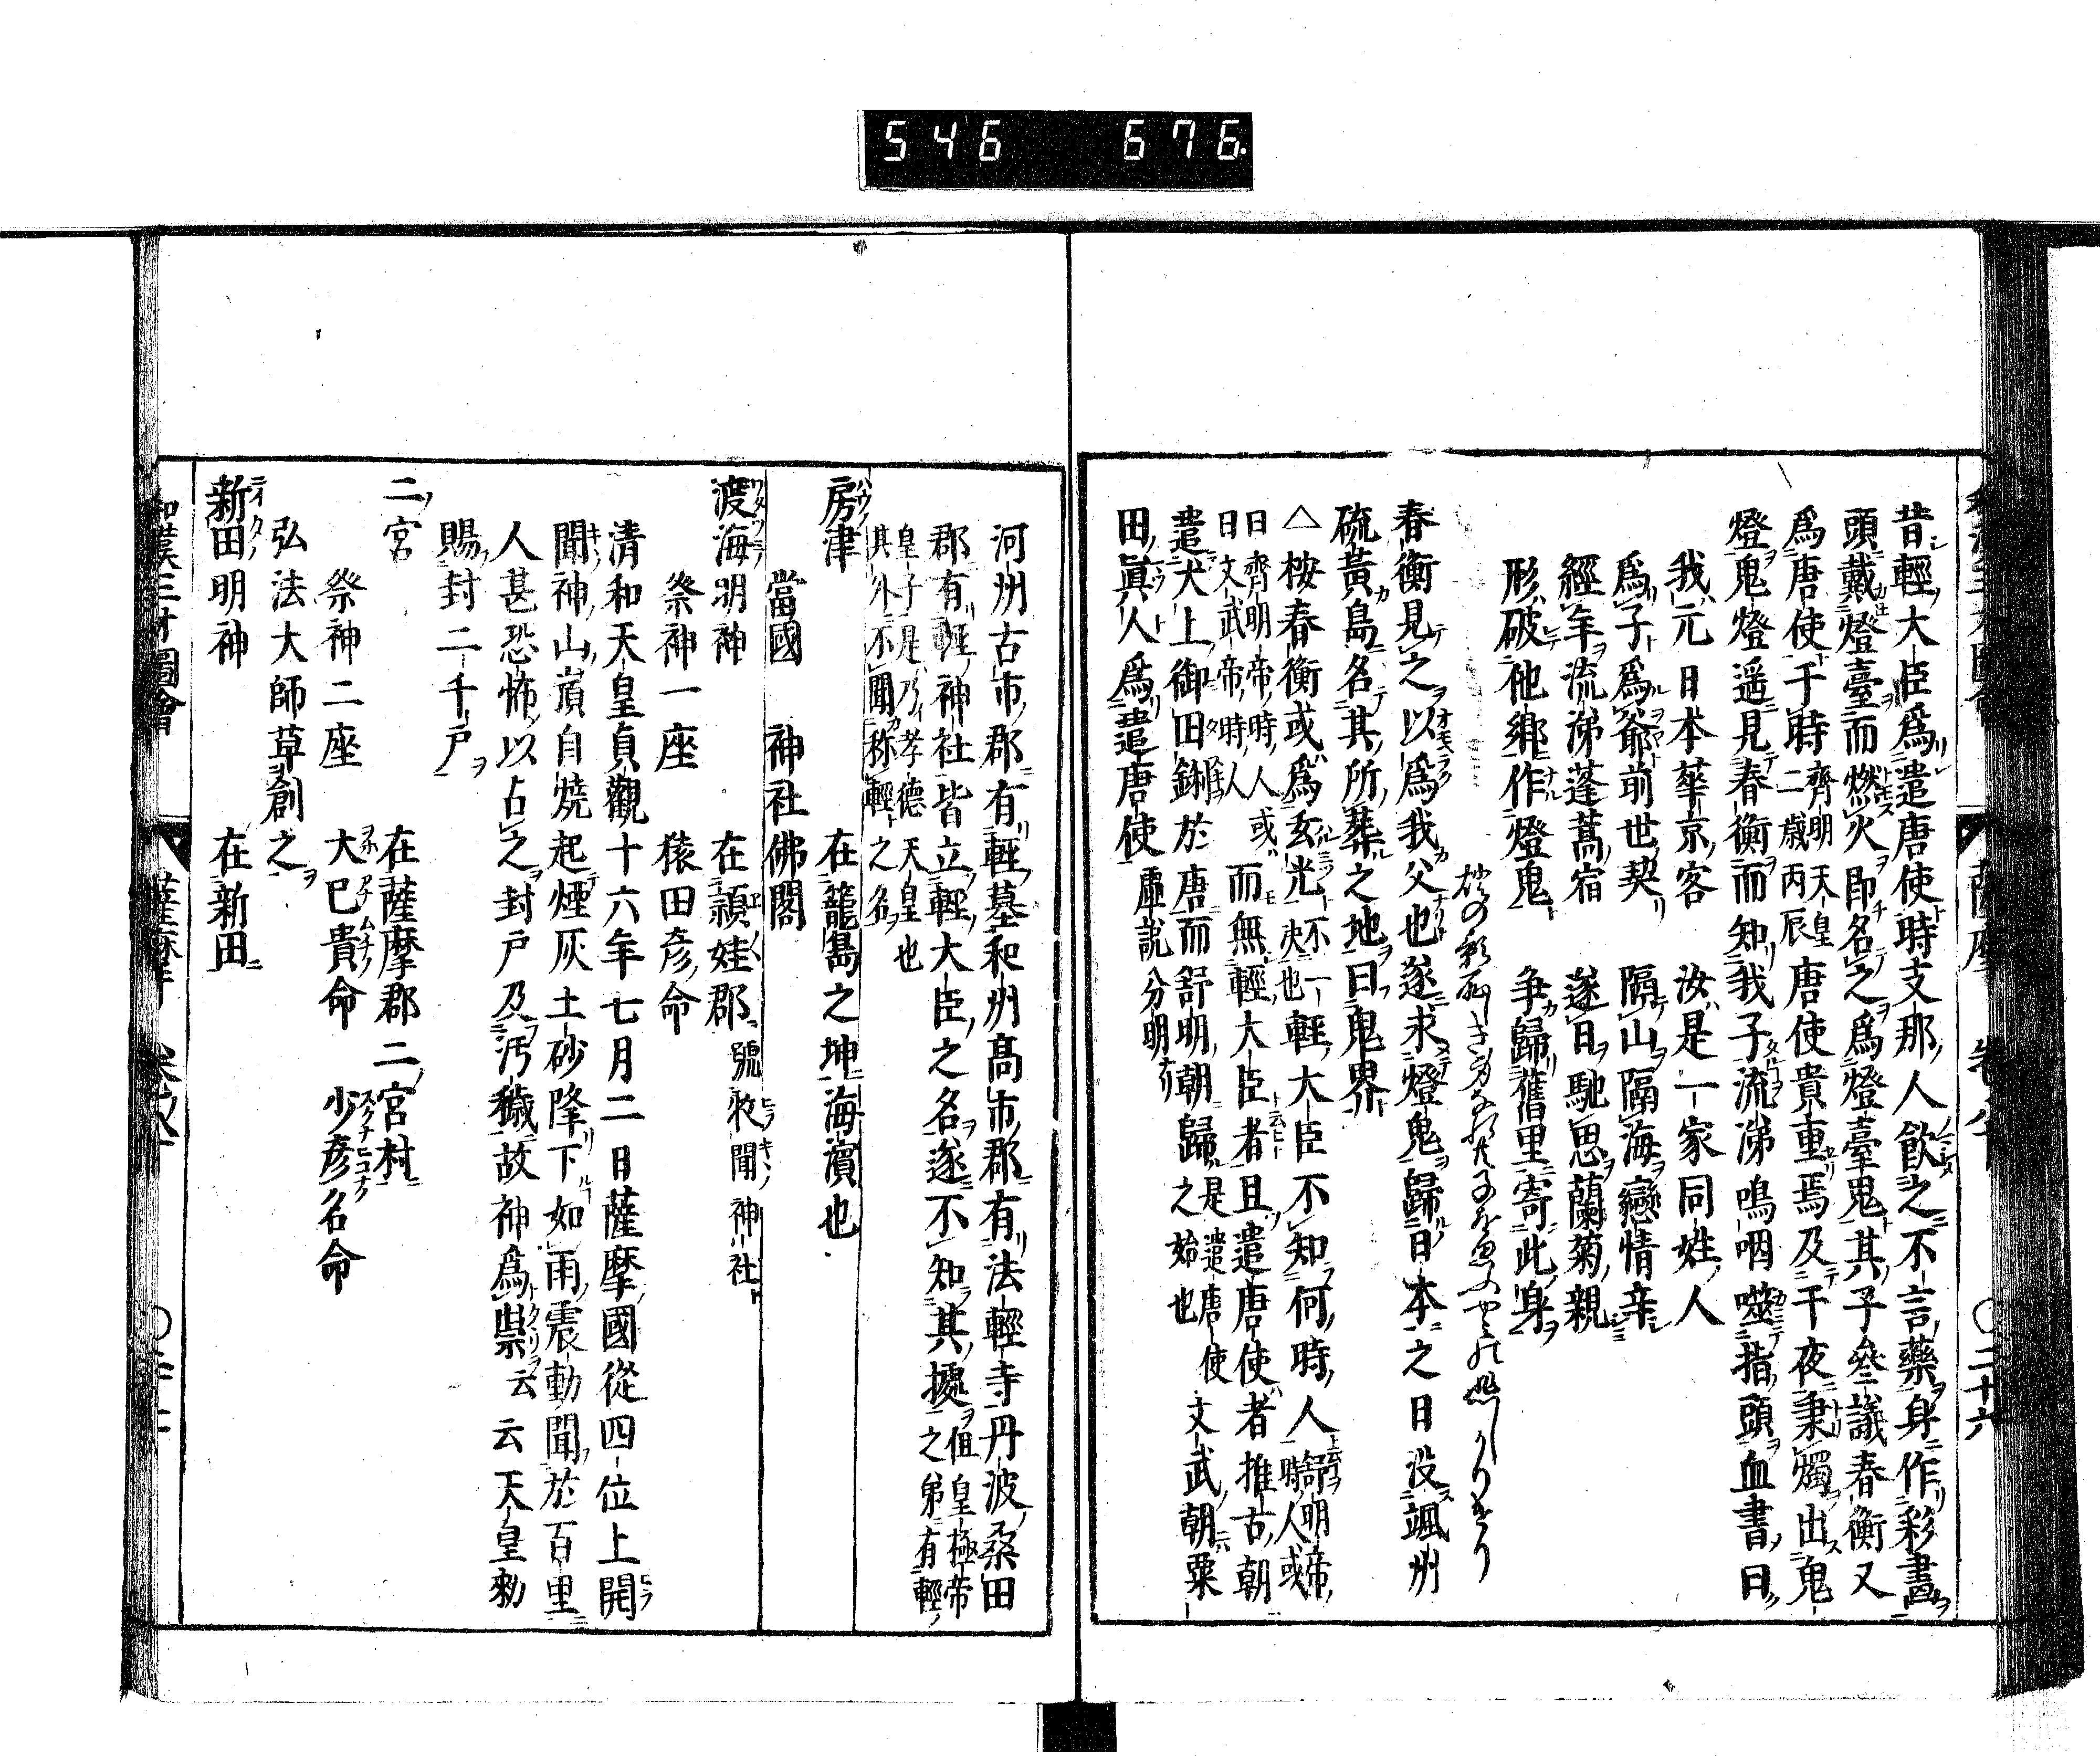 546 676
昔輕大臣爲遣唐使時支那人飲之不言藥身作彩畫
頭戴燈臺而燃火即名之爲燈臺鬼其子參議春衡又
爲唐使于時齊明天皇二歳丙辰唐使貴重焉及于夜秉燭出鬼
燈鬼燈遥見春衡而知我子流涕鳴咽噬指頭血書曰
我元日本華京客 汝是一家同姓人
爲子爲爺前世契 隔山隔海戀情辛
經年流涕蓬蒿宿 遂日馳思蘭菊親
形破他郷作燈鬼 争歸舊里寄此身
春衡見之以爲我父也遂求燈鬼歸日本之日没颯州
硫黃島名其所葬之地曰鬼界
△桉春衡或爲玄光不一輕大臣不知何時人上云舒明帝時人或
曰齊明帝時人或曰文武帝時人而無輕大臣者且遣唐使者推古朝
遣犬上御田鍬於唐而舒明朝歸之是遣唐使始也文武朝粟
田眞人爲遣唐使虚說分明
河州古市郡有輕墓和州高市郡有法輕寺丹波桑田
郡有輕神社皆立輕大臣之名遂不知其據但皇極帝之弟有輕
皇子是乃孝德天皇也其外不聞称輕之名
房津 在籠島之坤海濵也
當國 神社佛閣
渡海明神 在頴娃郡 號枚聞神社
祭神一座 猿田彦命
清和天皇貞觀十六年七月二日薩摩國從四位上開
聞神山頂自燒起煙灰土砂降下如雨震動聞於百里
人甚恐怖以占之封戸及汚穢故神爲祟云云天皇勅
賜封二千戸
二宮 在薩摩郡二宮村
祭神二座 大巳貴命 少彦名命
弘法大師草創之
新田明神 在新田
和漢三才圖會 薩摩